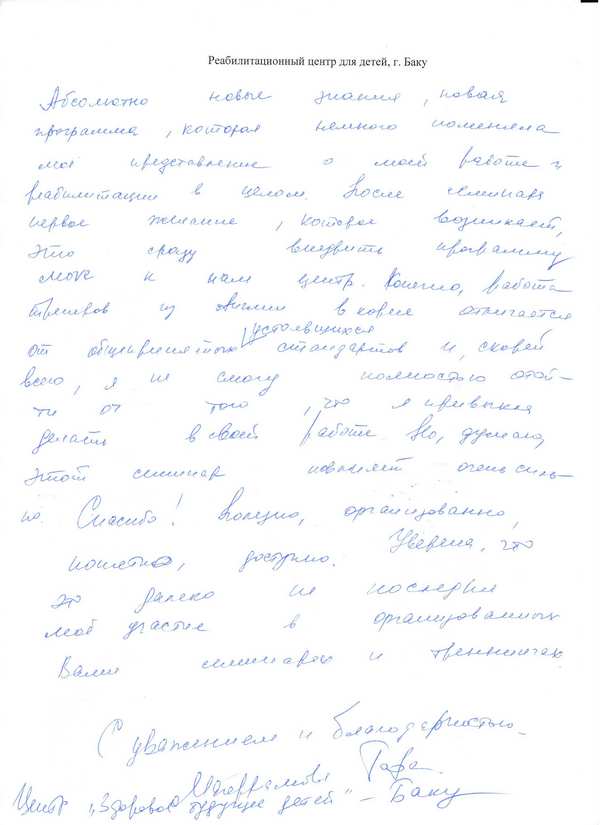 Реабилитационный центр для детей, г. Баку
Абсолютно новые знания, новая
программа, которая немного поменяла
моё представление о моей работе и
реабилитации в целом. После семинара
первое желание, которое возникает,
это сразу внедрить программу
Move в наш центр. Конечно, работа
тренеров из Англии в корне отличается
устоявшихся
от общепринятых стандартов и, скорей
всего, я не смогу полностью отой-
ти от того, что я привыкла
делать в своей работе. Но, думаю,
этот семинар повлияет очень силь-
но. Спасибо! Полезно, организованно,
понятно, доступно. Уверена, что
это далеко не последнее
моё участие в организованных
Вами семинарах и тренингах.
С уважением и благодарностью
Центр "Здоровое будущее детей" - Баку